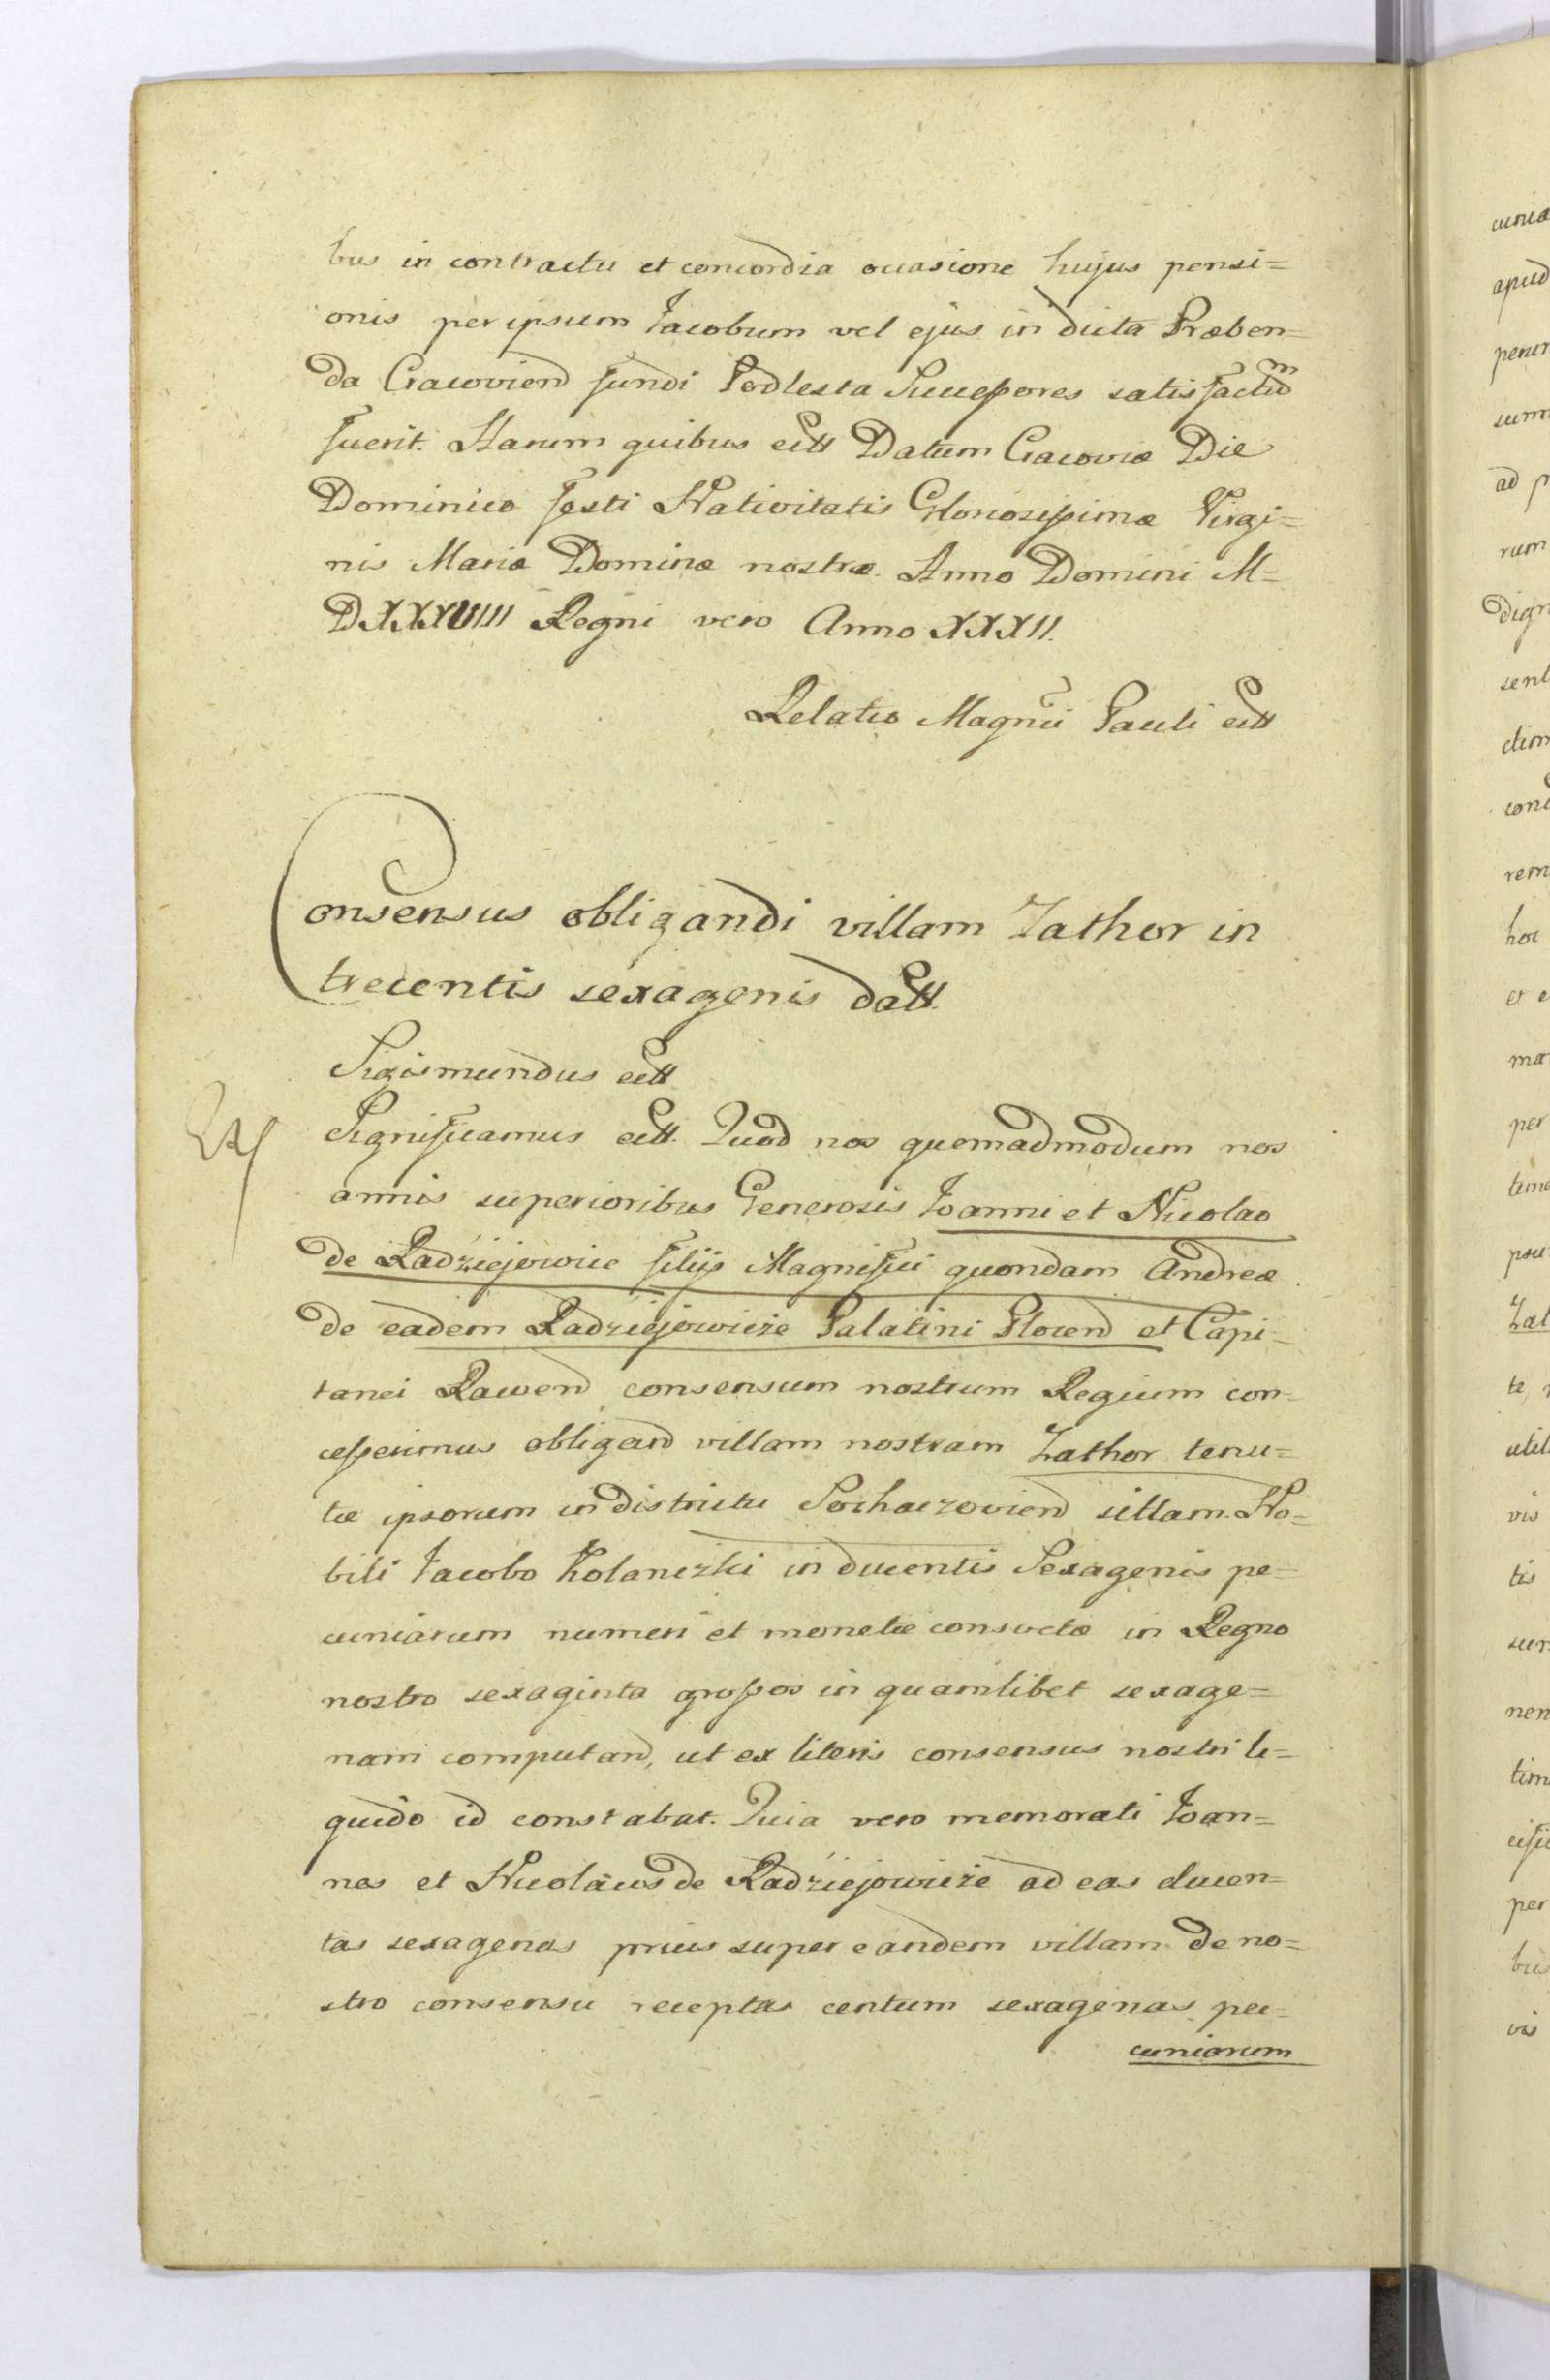 bus in contractu et concordia occasione hujus pensi=
onis per ipsum Jacobum vel ejus in dicta Præben=
da Cracoviend fundi Podlesta Successores satisfactum
fuerit. Harum quibus ett Datum Cracoviæ Die
Dominico festi Nativitatis Gloriosissimæ Virgi=
nis Mariæ Dominæ nostræ. Anno Domini M=
DXXXVIII Regni vero Anno XXXII.
Relatio Magnci Pauli ett
Consensus obligandi villam Zathor in
trecentis sexagenis datt.
Sigismundus ett
Significamus ett. Quod nos quemadmodum nos
annis superioribus Generosis Joanni et Nicolao
de Radziejowice filijs Magnifici quondam Andreæ
de eadem Radziejowicze Palatini Plocend et Capi=
tanei Rawend consensum nostrum Regium con=
cesserimus obligand villam nostram Zathor tenu=
tæ ipsorum in districtu Sochaczoviend sittam. No=
bili Jacobo Kolaniczki in ducentis Sexagenis pe=
cuniarum numeri et monetæ consvetæ in Regno
nostro sexaginta grossos in quamlibet sexage=
nam computand, ut ex literis consensus nostri li=
quido id constabat. Quia vero memorati Joan=
nes et Nicolaus de Radziejowicze ad eas ducen=
tas sexagenas prius super eandem villam de no=
stro consensu receptas centum sexagenas pec=
cuniarum
cuniæ
apud
sum
ad p
rum
dign
sent
ctim
cond
rem
hoc
et e
ma
per
tene
psu
Zat
te,
util
vis
tis
sun
nen
tim
per
bus
vis